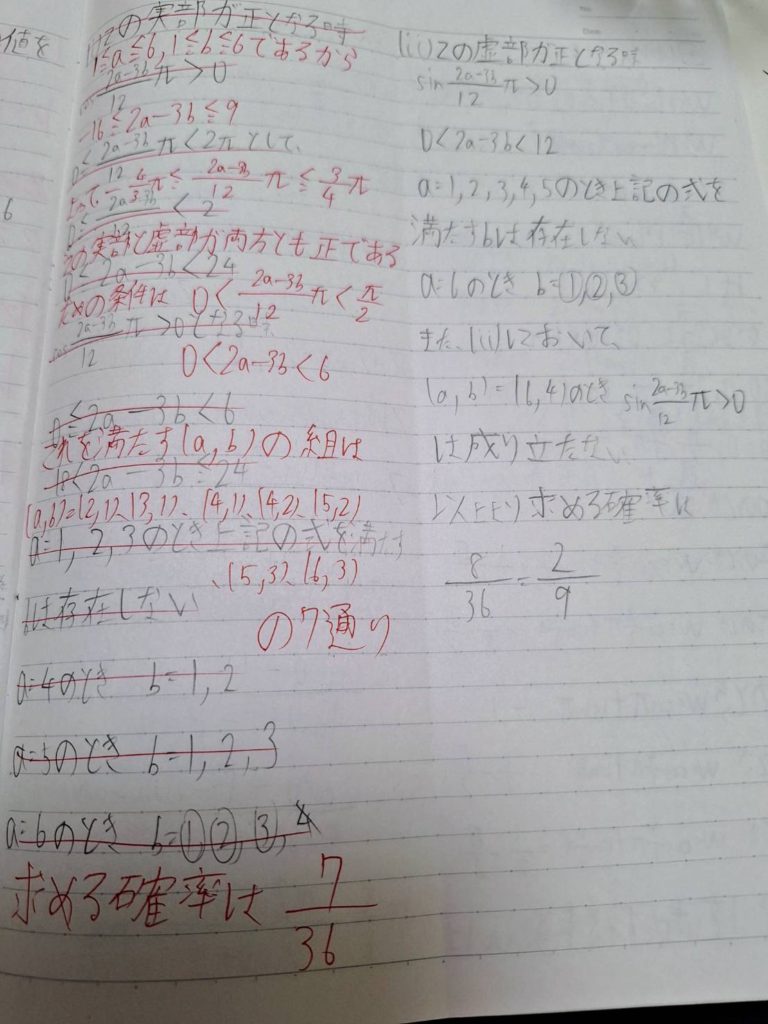 値を
6
(i)zの実部が正となる時
1≦a≦6, 1≦b≦6であるから
cos 2a-3b/12 π>0
-16≦2a-3b≦9
0<2a-3b/12 π<2πとして、
よって-4/3π≦2a-3b/12 π≦3/4π
0<2a-3b/12<2
zの実部と虚部が両方とも正である
0<2a-3b<24
ための条件は 0<2a-3b/12 π<π/2
cos 2a-3b/12 π>0となる時、
0<2a-3b<6
0≦2a-3b<6
これを満たす(a,b)の組は
18<2a-3b≦24
(a,b)=(2,1)、(3,1)、(4,1)、(4,2)、(5,2)
a=1, 2, 3のとき上記の式を満たす
、(5,3)、(6,3)
bは存在しない
の7通り
a=4のとき b=1, 2
a=5のとき b=1, 2, 3
a=6のとき b=①,②,③,4
求める確率は 7/36
(ii)zの虚部が正となる時
sin 2a-3b/12 π>0
0<2a-3b<12
a=1,2,3,4,5のとき上記の式を
満たすbは存在しない
a=6のとき b=①,②,③
また、(ii)において、
(a,b)=(6,4)のとき sin 2a-3b/12 π>0
は成り立たない
以上より求める確率は
8/36=2/9